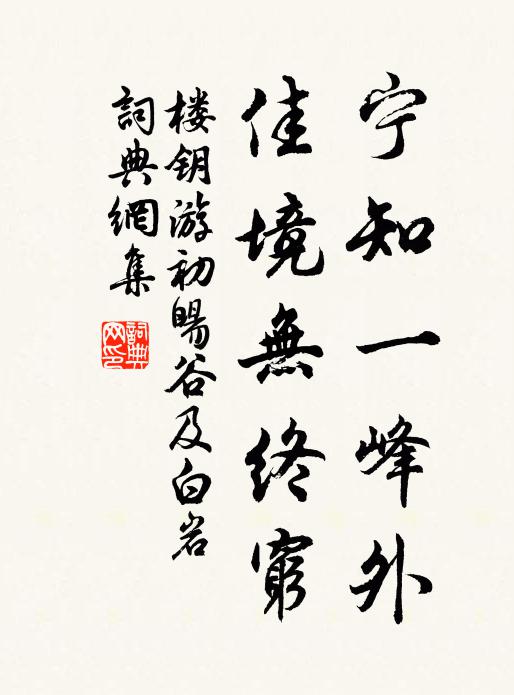 宁知一峰外
佳境無終窮
楼钥游初暘谷及白岩
詞典網集
詞典網印